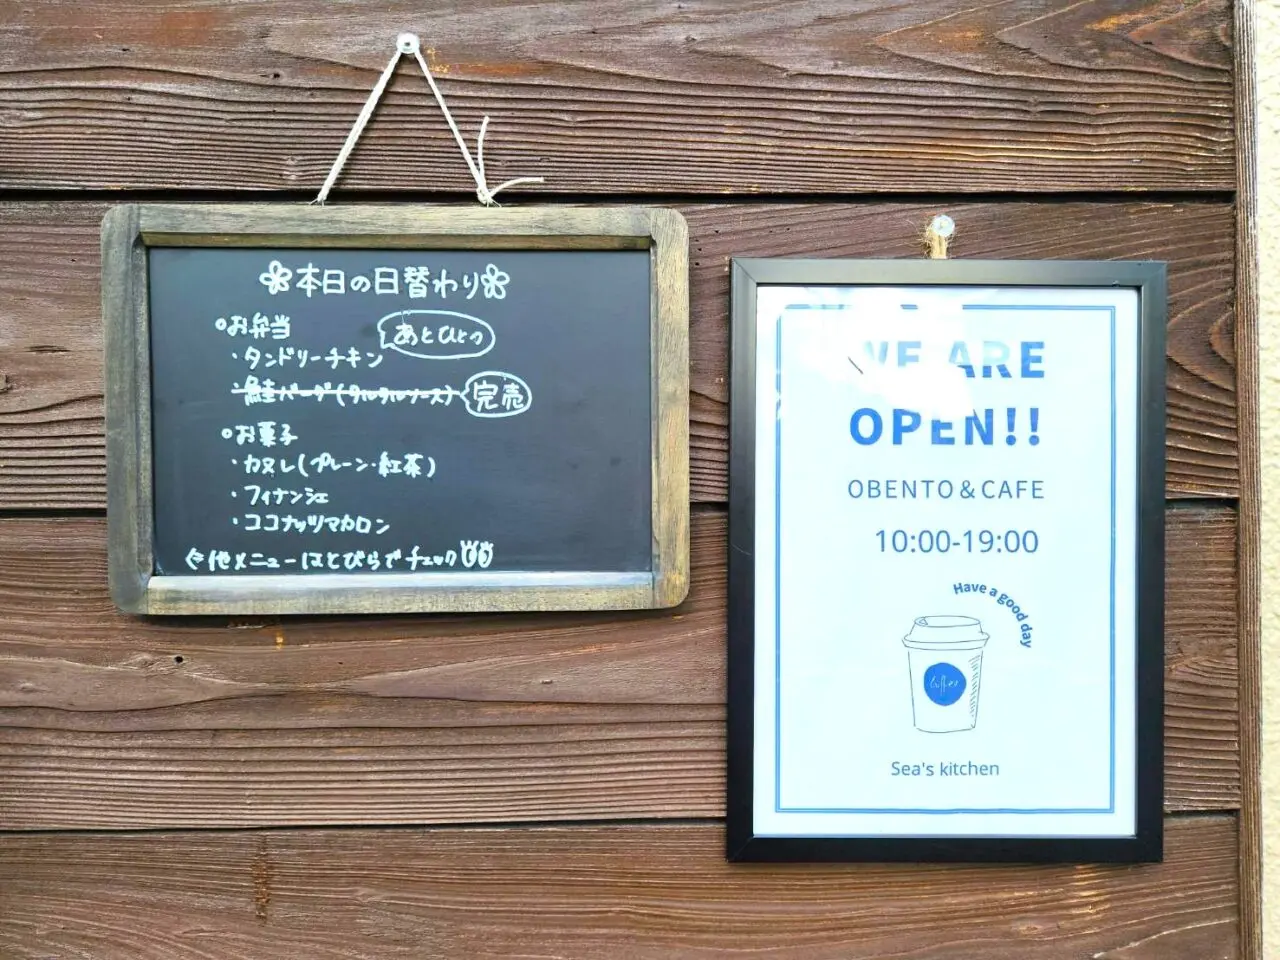 本日の日替わり
お弁当
あとひとつ
・タンドリーチキン
・鮭バーグ(タルタルソース)
完売
お菓子
・カヌレ(プレーン・紅茶)
・フィナンシェ
・ココナッツマカロン
他メニューはとびらでチェック
WE ARE
OPEN!!
OBENTO & CAFE
10:00-19:00
Have a good day
Coffee
Sea's kitchen